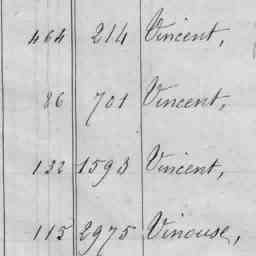 464 214 Vincent,
86 701 Vincent,
132 1593 Vincent,
115 2975 Vinouse,